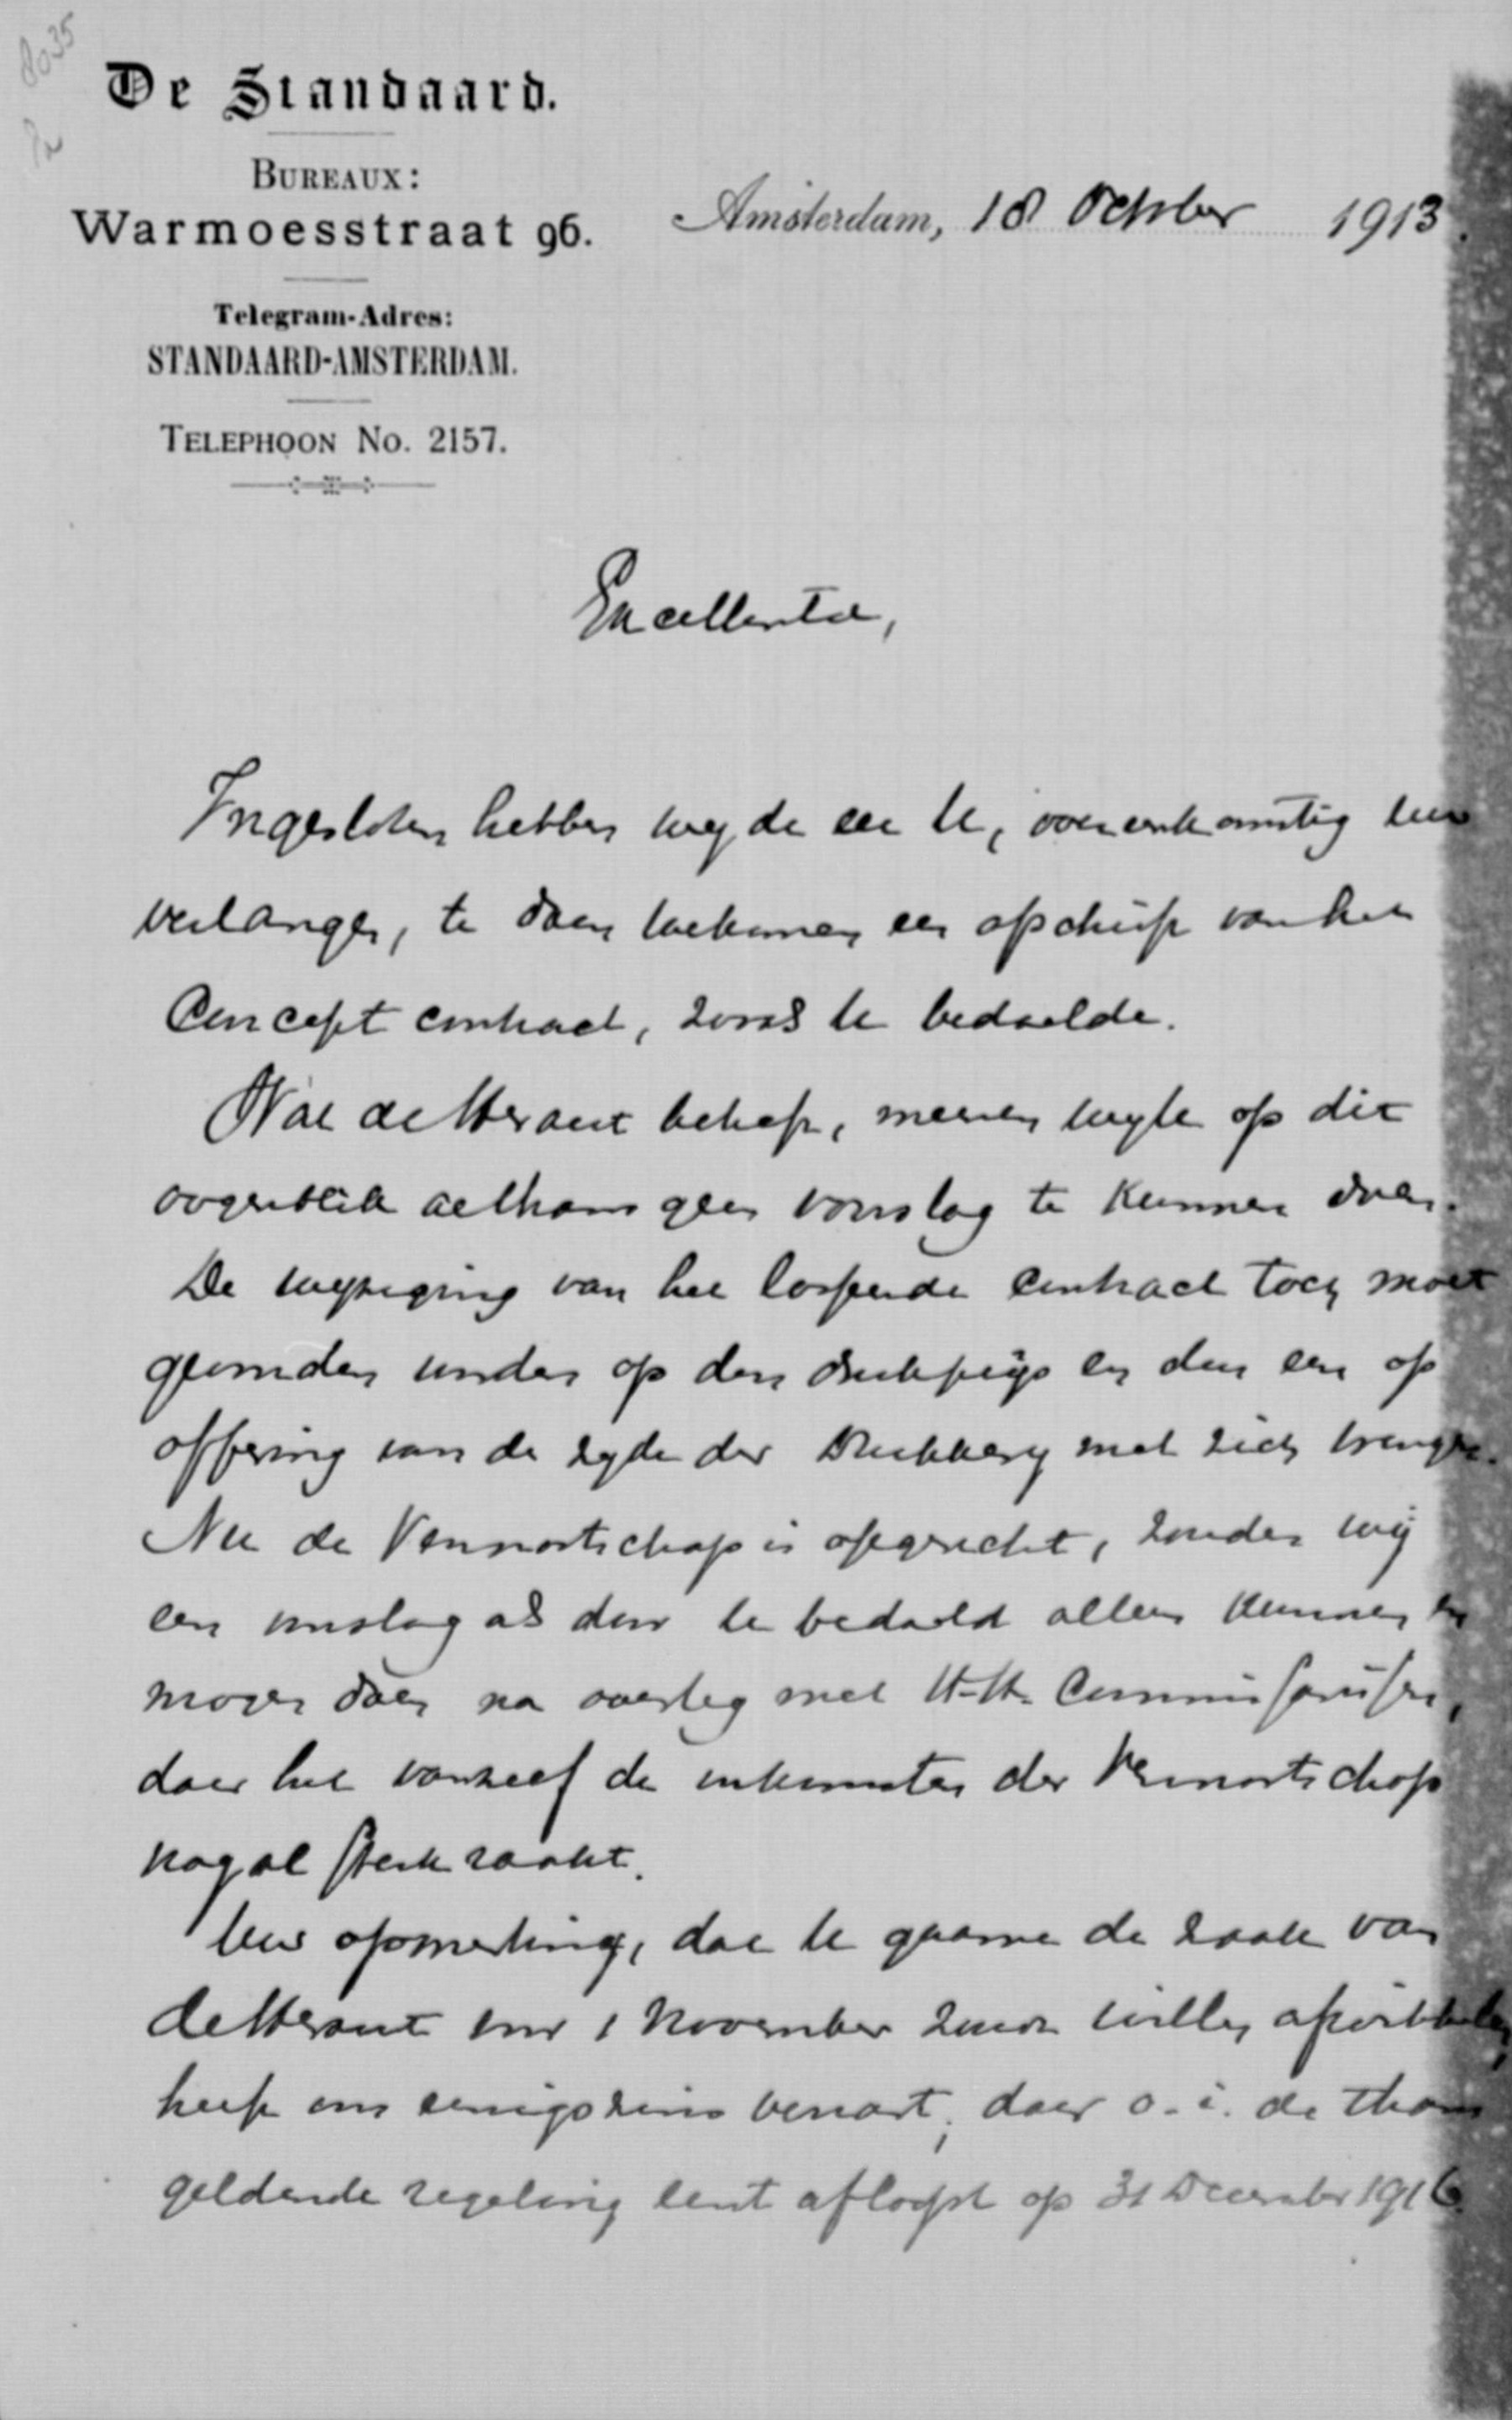 8035
De Standaard.
BUREAUX:
Warmoesstraat 96.
Amsterdam, 18 October 1913.
Telegram-Adres:
STANDAARD-AMSTERDAM.
TELEPHOON No. 2157.
Excellentie,
Ingesloten hebben wij de eer U, overeenkomstig Uw
verlangen, te doen toekomen een afschrift van het
Concept contract, zooals U bedoelde.
Wat de Heraut betreft, meenen wij U op dit
oogenblik althans geen voorslag te kunnen doen.
De wijziging van het loopende contract toch moet
gevonden worden op den drukprijs en dus een op
offering van de zyde der Drukkery met zich brengen.
Nu de Vennootschap is opgericht, zouden wij
een voorslag als door U bedoeld alleen kunnen en
mogen doen na overleg met H.H. Commissarissen,
daar het vanzelf de inkomsten der Vennootschap
nogal sterk raakt.
Uw opmerking, dat U gaarne de zaak van
de Heraut voor 1 November zoudt willen afwikkelen,
heeft ons eenigszins verrast, daar o.i. de thans
geldende regeling eerst afloopt op 31 December 1916.